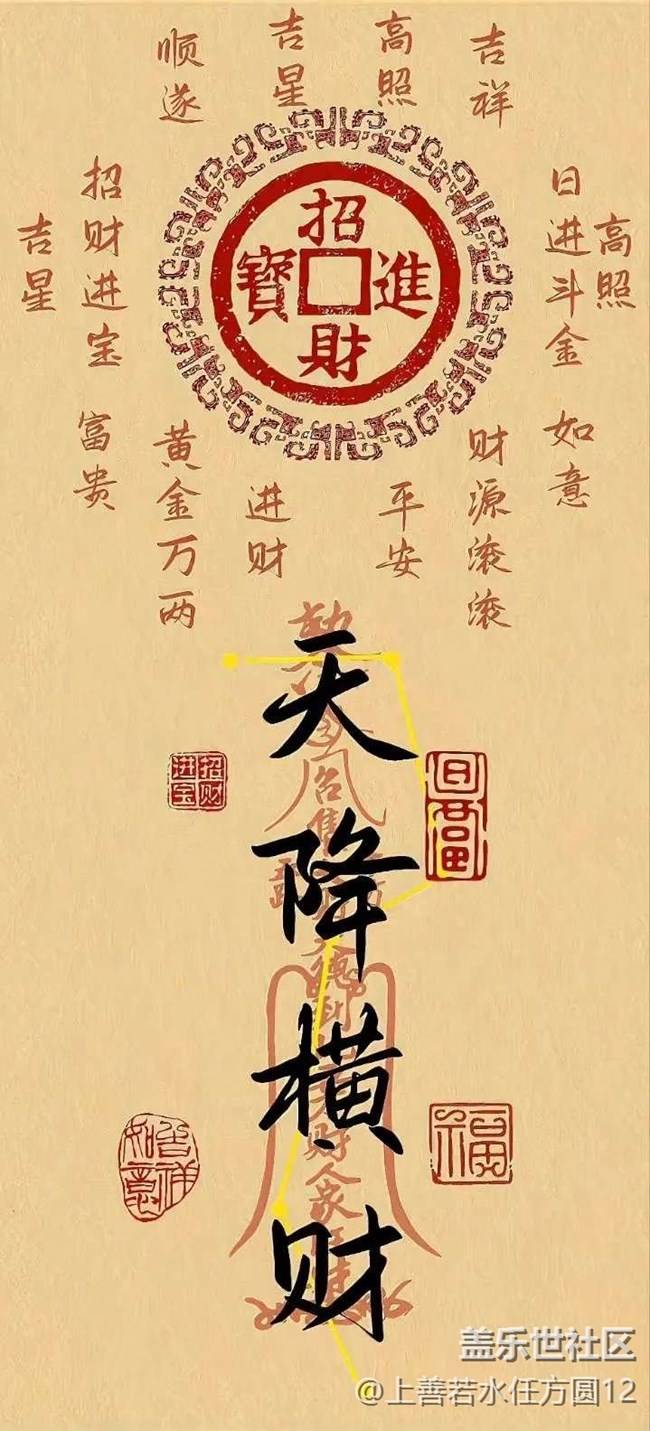 顺遂
吉星
高照
吉祥
吉星
招财进宝
日进斗金
高照
招財進寶
富贵
黄金万两
进财
平安
财源滚滚
如意
天降横财
招财进宝
福
吉祥如意
盖乐世社区
@上善若水任方圆12